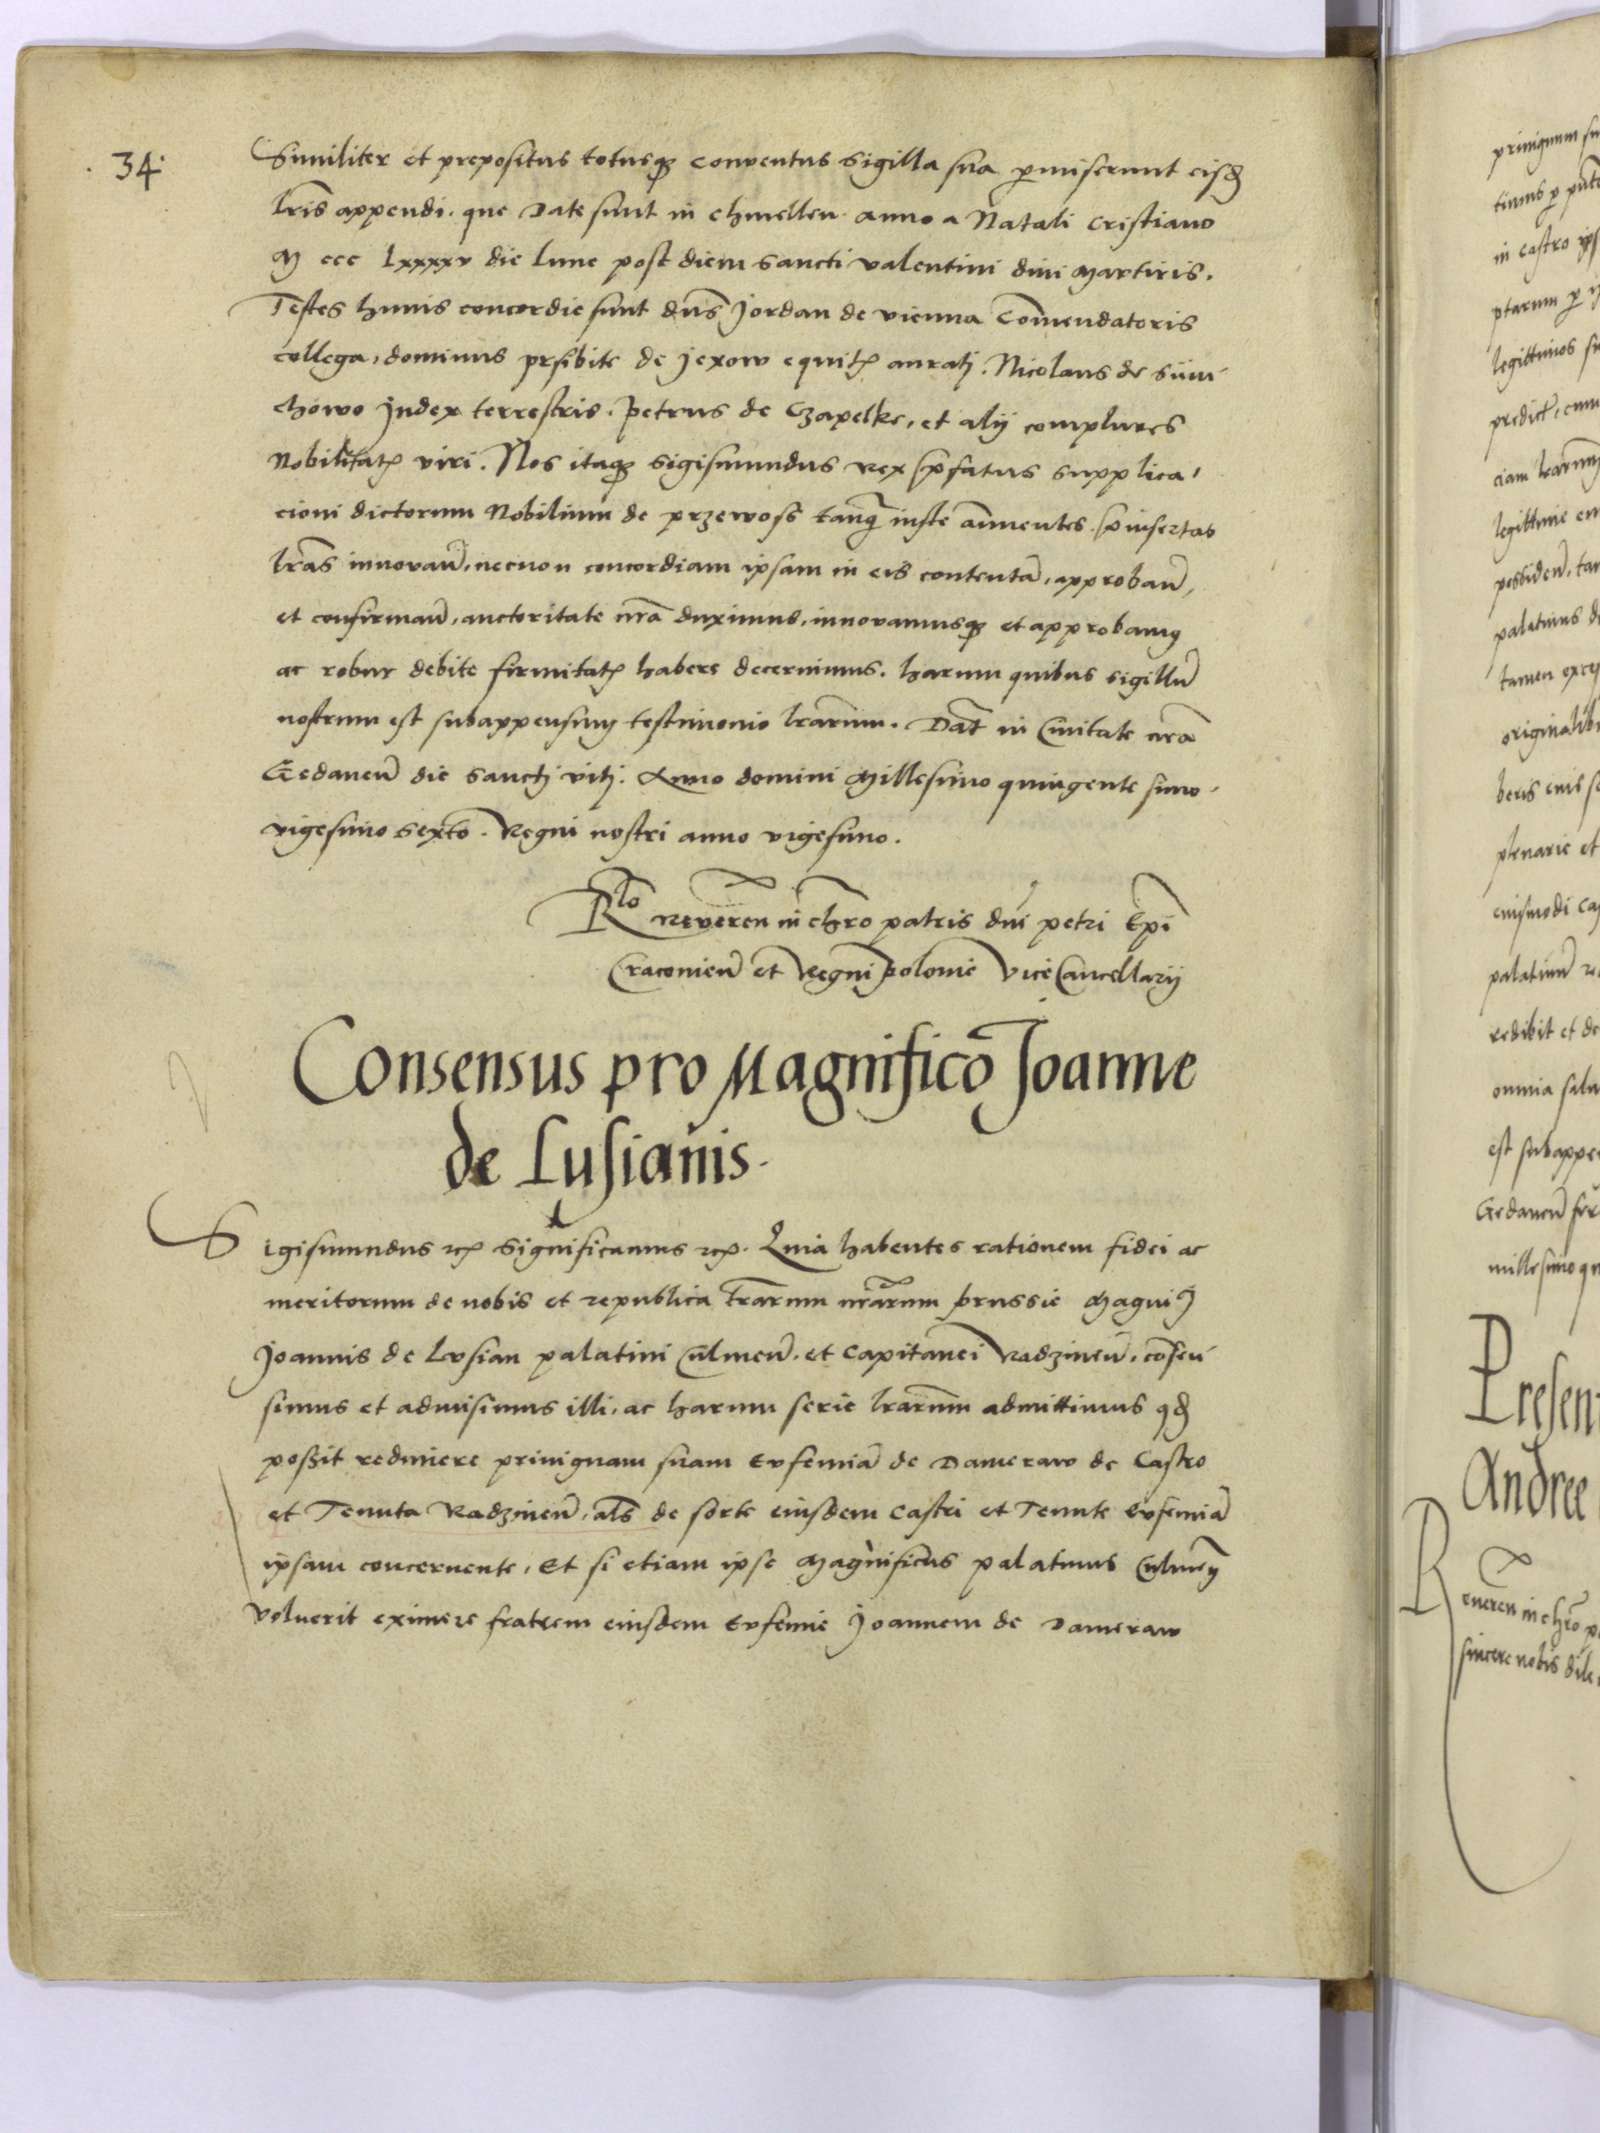 34
Similiter et prepositus totusq₃ conventus sigilla sua p̱miserunt eisd̄
lr̄is appendi. que Date sunt in chmellen. anno a Natali cristiano
M ccc Lxxxxv die lune post diem sancti valentini divi Martiris.
Testes huius concordie sunt dn̄s Jordan de vienna Com̄endatoris
collega, dominus prsibite de Jexow equitꝫ aurati. Nicolaus de sŭm
chowo Judex terrestris. petrus de Czapelke, et alij complures
Nobilitatꝫ viri. Nos itaq₃ Sigismundus rex p̄fatus supplica,
cioni dictorum Nobilium de przewoss tanq̄ iuste an̄uentes p̄insertas
lr̄as innovan̄, necnon concordiam ipsam in eis contentā, approban̄,
et confirman̄, auctoritate nr̄a duximus, innovamusq₃ et approbamꝰ
ac robur debite firmitatꝫ habere decernimus. harum quibus sigillū
nostrum est subappensum testimonio lr̄arum. Dat̄ in Civitate nr̄a
Gedanen̄ die sancti viti. Anno domini Millesimo quingente simo.
vigesimo sexto. Regni nostri anno vigesimo.
Rlo Reveren in chr̄o patris dn̄i petri Ep̄i
Cracovien̄ et Regni polonie Vice Cancellarij
Consensus pro Magnifico Joanne
de Lusianis.
Sigismundus rc̄ꝫ significamus rc̄ꝫ. Quia habentes rationem fidei ac
meritorum de nobis et republica terrarum nr̄arum prussie Magni⁹
Joannis de Lusian palatini Culmen̄. et Capitanei Radzinen̄, cōsen
simus et admisimus illi, ac harum serie lr̄arum admittimus qd̄
possit redimere privignam suam Eufemiā de Dameraw de Castro
et Tenuta Radzinen̄, al̄s de sorte eiusdem Castri et Tenute Eufemiā
ipsam concernente, Et si etiam ipse Magnificus palatinus Culmen̄
voluerit eximere fratrem eiusdem Eufemie Joannem de Dameraw
privignum su
tinus p̱ pn̄te
in castro ips
ptarum p̱
legittimos su
predict̄, cum
ciam lr̄arum
legittime em
possiden̄, tan
palatinus d
tamen excep
originalibu
beris eius s
plenarie et
eiusmodi ca
palatinū re
redibit et de
omnia salu
est subappen
Gedanen̄ fer
millesimo qu
Presen
Andree
Reveren̄ in chr̄o p
sincere nobis dile